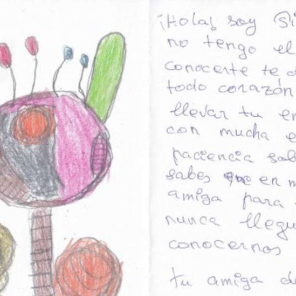 ¡Hola! soy Si
no tengo el
conocerte te d
todo corazón
llevar tu en
con mucha e
paciencia sab
sabes que en m
amiga para
nunca llegu
conocernos
tu amiga de